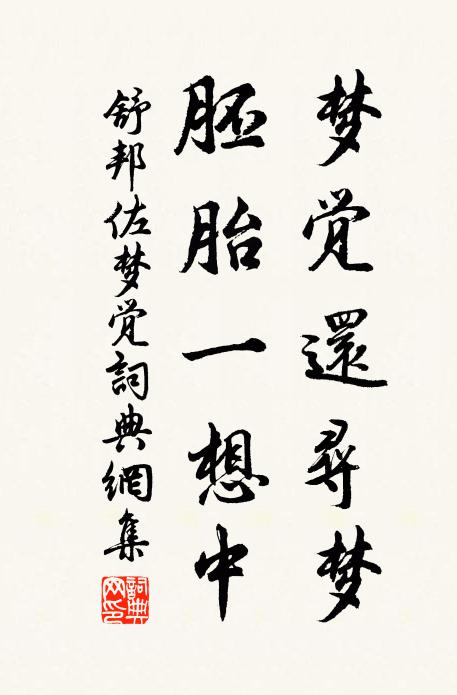 梦觉還尋梦
胚胎一想中
舒邦佐梦觉詞典網集
詞典网印